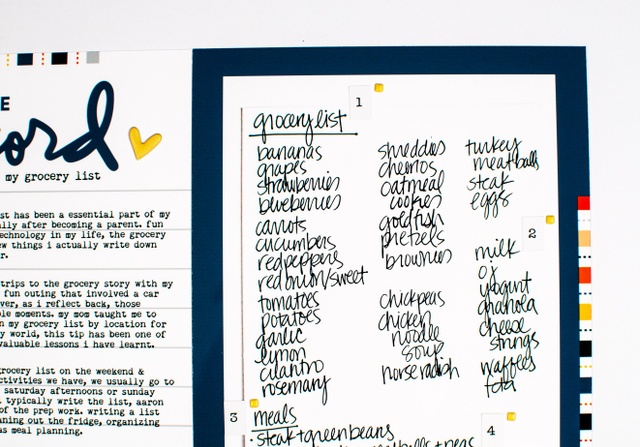 E
ord
my grocery list
st has been a essential part of my
ally after becoming a parent. fun
echnology in my life, the grocery
ew things i actually write down
r.
trips to the grocery story with my
fun outing that involved a car
ver, as i reflect back, those
le moments. my mom taught me to
n my grocery list by location for
y world, this tip has been one of
valuable lessons i have learnt.
grocery list on the weekend &
ctivities we have, we usually go to
saturday afternoons or sunday
t typically write the list, aaron
of the prep work. writing a list
aning out the fridge, organizing
as meal planning.
1
grocery list
bananas
grapes
strawberries
blueberries
carrots
cucumbers
red peppers
red onion/sweet
tomatoes
potatoes
garlic
lemon
cilantro
rosemary
shreddies
cheerios
oatmeal
cookies
goldfish
pretzels
brownies
chickpeas
chicken
noodle
soup
horseradish
turkey
meatballs
steak
eggs
2
milk
oj
yogurt
granola
cheese
strings
waffles
feta
3
meals
· steak + green beans
meatballs + peas
4